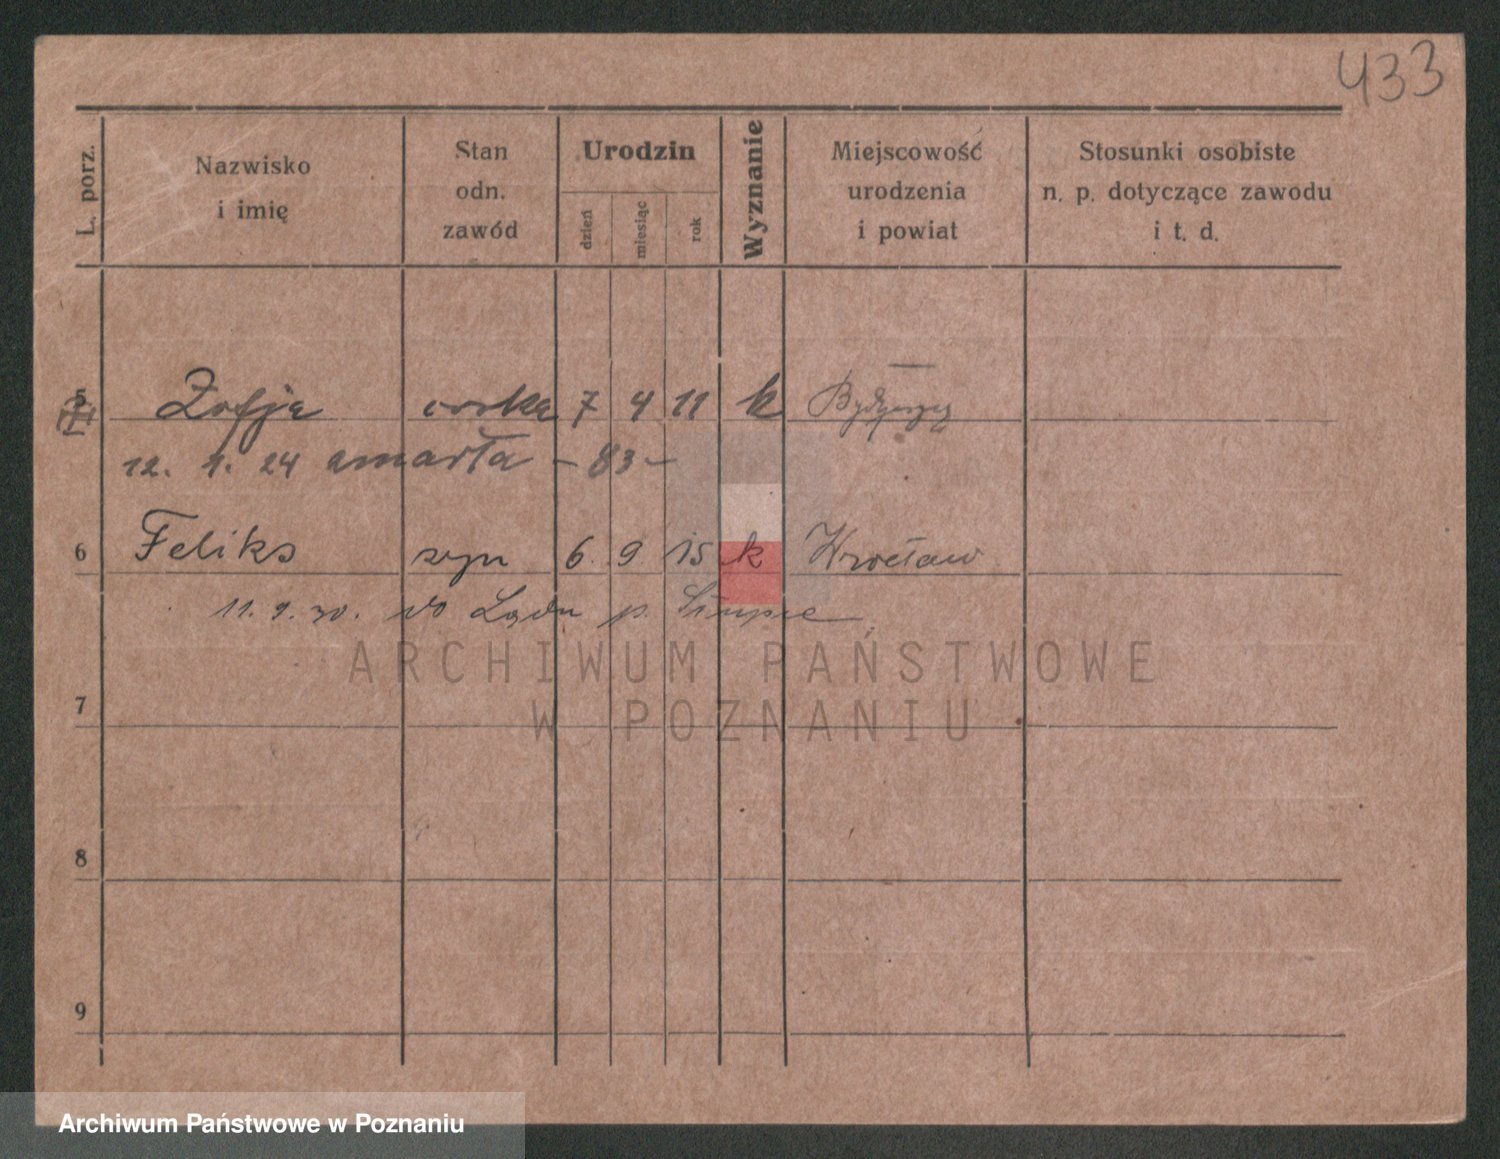 433
L. porz.
Nazwisko
i imię
Stan
odn.
zawód
Urodzin
dzień
miesiąc
rok
Wyznanie
Miejscowość
urodzenia
i powiat
Stosunki osobiste
n. p. dotyczące zawodu
i t. d.
5 Zofja córka 7 4 11 k
12. 1. 24 zmarła – 83 –
6 Feliks syn 6 9 15 k Wrocław
11. 9. 30. do Lądu p. Słupce
ARCHIWUM PAŃSTWOWE
W POZNANIU
7
8
9
Archiwum Państwowe w Poznaniu